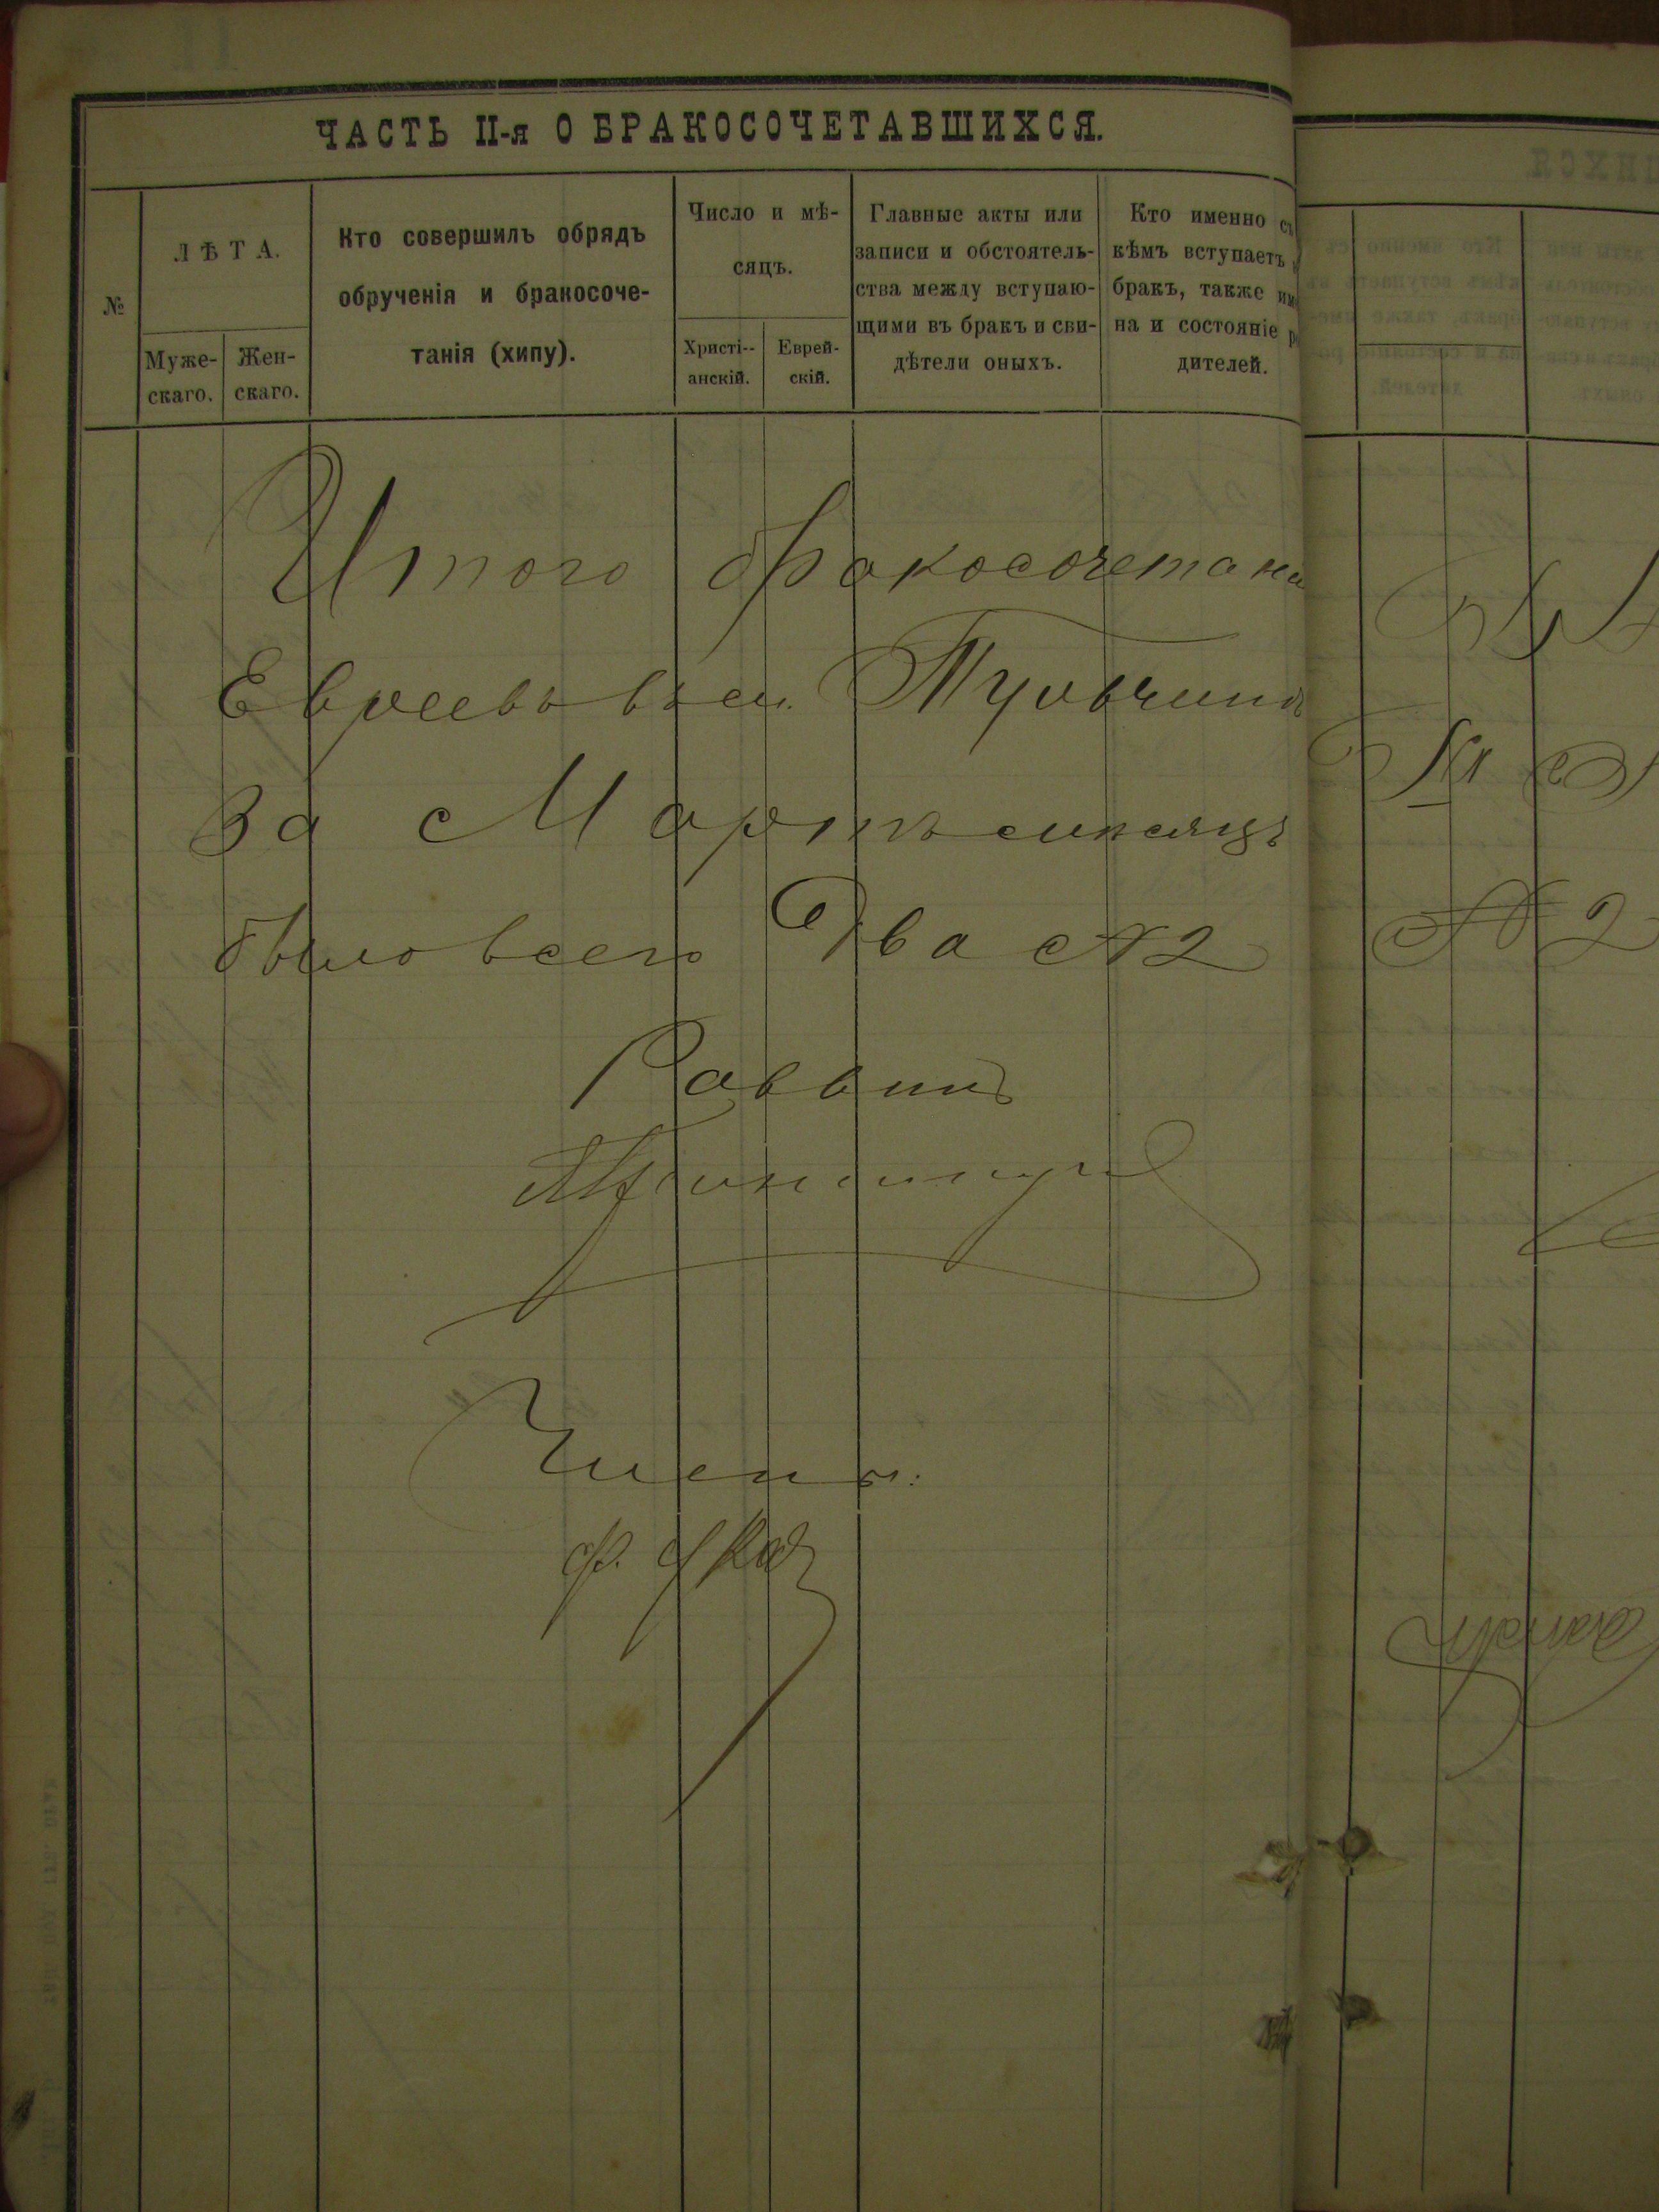 ЧАСТЬ II-я О БРАКОСОЧЕТАВШИХСЯ.
№
ЛѢТА.
Муже-
скаго.
Жен-
скаго.
Кто совершилъ обрядъ
обрученія и бракосоче-
танія (хипу).
Число и мѣ-
сяцъ.
Христі-
анскій.
Еврей-
скій.
Главные акты или
записи и обстоятель-
ства между вступаю-
щими въ бракъ и сви-
дѣтели оныхъ.
Кто именно съ
кѣмъ вступаетъ
бракъ, также
на и состояніе
дителей.
Итого бракосочетани
Евреевъ въ м. Тульчинѣ
За Мартъ мѣсяцъ
было всего Два № 2
Раввинъ
Члены:
№ 2